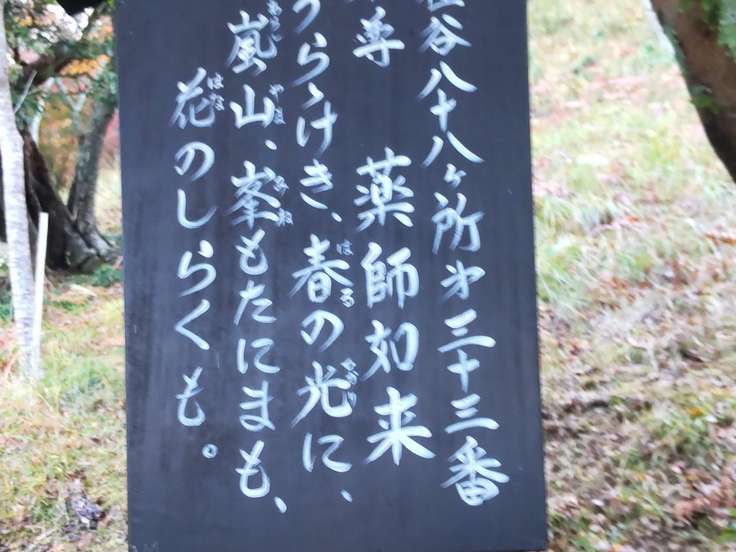 谷八十八ヶ所第三十三番
尊 薬師如来
うらゝけき、春の光に、
嵐山、峯もたにまも、
花のしらくも。